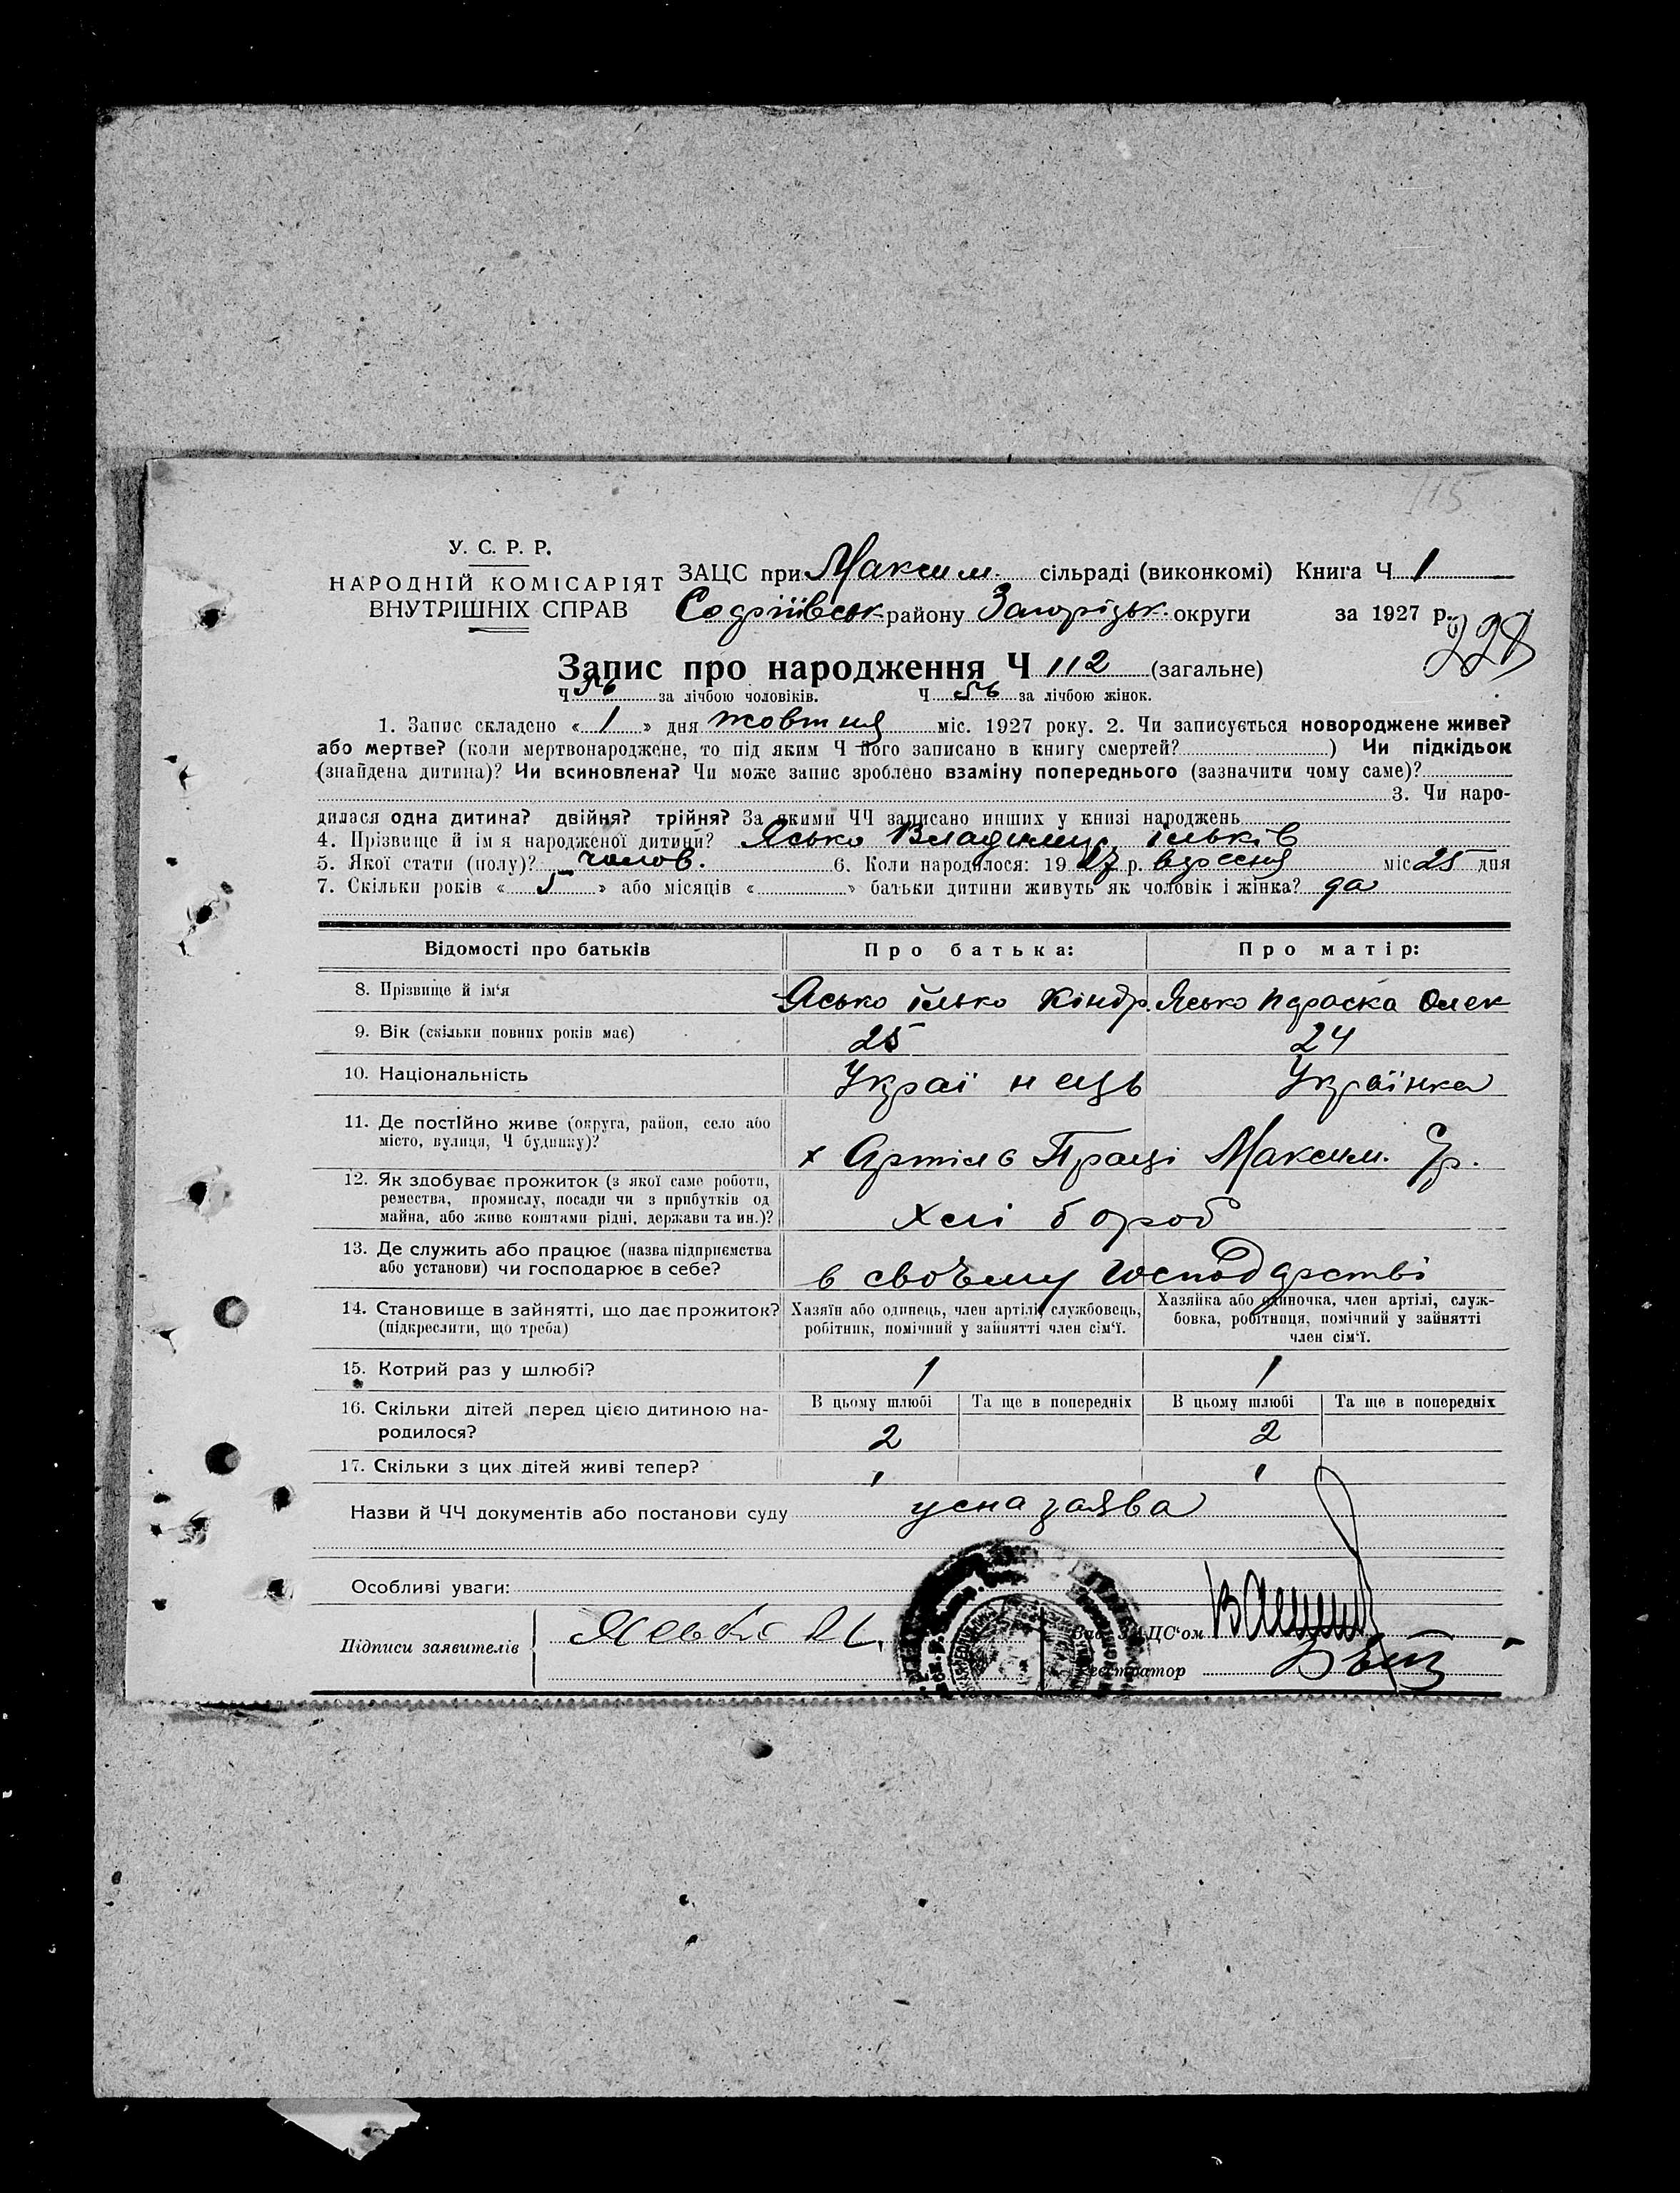 115
У. С. Р. Р.
НАРОДНІЙ КОМІСАРІЯТ
ВНУТРІШНІХ СПРАВ
ЗАЦС при Максим. сільраді (виконкомі) Книга Ч 1
Софіївськ району Запорізьк. округи за 1927 р.
228
Запис про народження Ч 112 (загальне)
Ч 56 за лічбою чоловіків. Ч 56 за лічбою жінок.
1. Запис складено « 1 » дня жовтня міс. 1927 року. 2. Чи записується новороджене живе?
або мертве? (коли мертвонароджене, то під яким Ч його записано в книгу смертей? ) Чи підкідьок
(знайдена дитина)? Чи всиновлена? Чи може запис зроблено взаміну попереднього (зазначити чому саме)?
3. Чи наро-
дилася одна дитина? двійня? трійня? За якими ЧЧ записано инших у книзі народжень
4. Прізвище й імя народженої дитини? Ясько Владимир ільків
5. Якої стати (полу)? чолов. 6. Коли народилося: 1927 р. вресня міс 25 дня
7. Скільки років « 5 » або місяців « » батьки дитини живуть як чоловік і жінка? да
Відомості про батьків Про батька: Про матір:
8. Прізвище й ім'я Ясько ілько Кіндр. Ясько Параска Олек
9. Вік (скільки повних років має) 25 24
10. Національність Українець Українка
11. Де постійно живе (округа, район, село або
місто, вулиця, Ч будинку)? х Артіль Праці Максим.
12. Як здобуває прожиток (з якої саме роботи,
ремества, промислу, посади чи з прибутків од
майна, або живе коштами рідні, держави та ин.)? Хлібороб
13. Де служить або працює (назва підприємства
або установи) чи господарює в себе? в своєму господарстві
14. Становище в зайнятті, що дає прожиток?
(підкреслити, що треба)
Хазяїн або одинець, член артілі, службовець,
робітник, помічний у зайнятті член сім'ї.
Хазяйка або одиночка, член артілі, служ-
бовка, робітниця, помічний у зайнятті
член сім'ї.
15. Котрий раз у шлюбі? 1 1
16. Скільки дітей перед цією дитиною на-
родилося?
В цьому шлюбі Та ще в попередніх В цьому шлюбі Та ще в попередніх
2 2
17. Скільки з цих дітей живі тепер? 1 1
Назви й ЧЧ документів або постанови суду усна заява
Особливі уваги:
Підписи заявителів Ясько
Зав. ЗАЦС'ом
Реєстратор